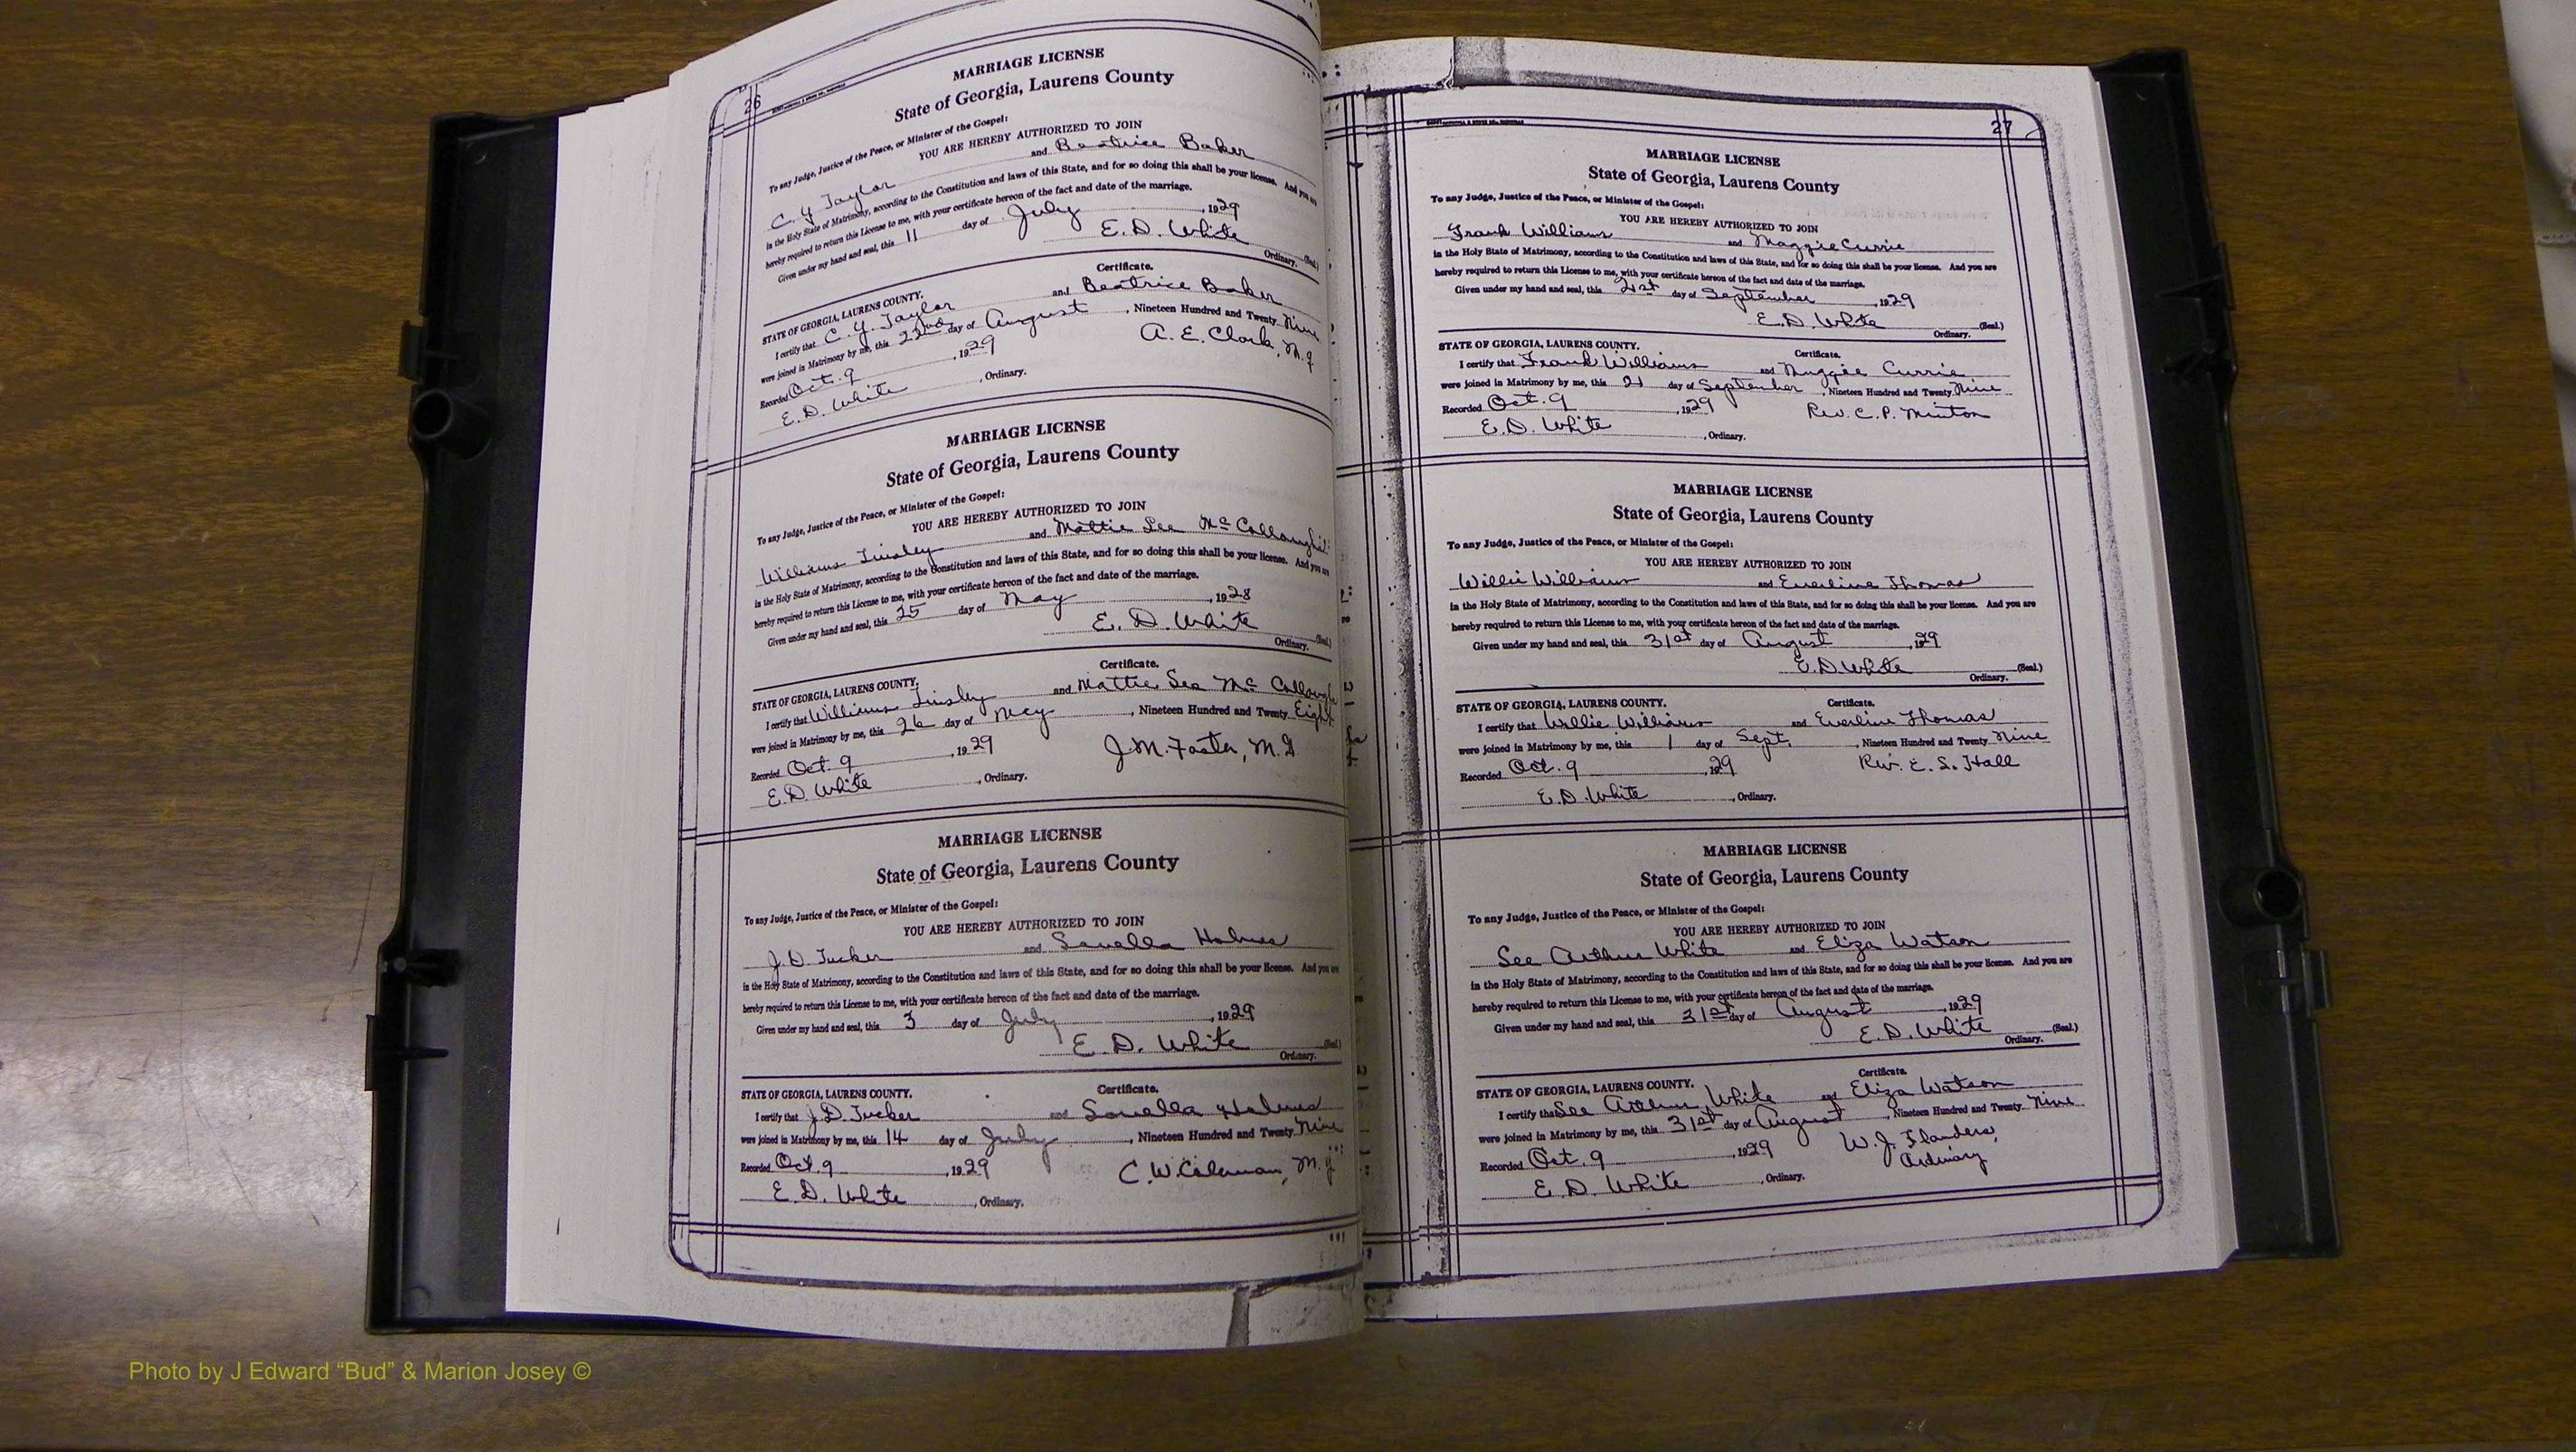 26
MARRIAGE LICENSE
State of Georgia, Laurens County
To any Judge, Justice of the Peace, or Minister of the Gospel:
YOU ARE HEREBY AUTHORIZED TO JOIN
C. Y. Taylor and Beatrice Baker
in the Holy State of Matrimony, according to the Constitution and laws of this State, and for so doing this shall be your license. And you are
hereby required to return this License to me, with your certificate hereon of the fact and date of the marriage.
Given under my hand and seal, this 11 day of July, 1929
E. D. White (Seal.)
Ordinary.
Certificate.
STATE OF GEORGIA, LAURENS COUNTY.
I certify that C. Y. Taylor and Beatrice Baker
were joined in Matrimony by me, this 22nd day of August, Nineteen Hundred and Twenty Nine
Recorded Oct. 9, 1929 A. E. Clark,
E. D. White, Ordinary.
MARRIAGE LICENSE
State of Georgia, Laurens County
To any Judge, Justice of the Peace, or Minister of the Gospel:
YOU ARE HEREBY AUTHORIZED TO JOIN
Williams Linsley and Mattie Lee
in the Holy State of Matrimony, according to the Constitution and laws of this State, and for so doing this shall be your license. And you are
hereby required to return this License to me, with your certificate hereon of the fact and date of the marriage.
Given under my hand and seal, this 25 day of May, 1928
E. D. White (Seal.)
Ordinary.
Certificate.
STATE OF GEORGIA, LAURENS COUNTY.
I certify that Williams Linsley and Mattie Lee
were joined in Matrimony by me, this 26 day of May, Nineteen Hundred and Twenty Eight
Recorded Oct. 9, 1929 J. M. Foster, M. G
E. D. White, Ordinary.
MARRIAGE LICENSE
State of Georgia, Laurens County
To any Judge, Justice of the Peace, or Minister of the Gospel:
YOU ARE HEREBY AUTHORIZED TO JOIN
J. D. Tucker and Louella Holmes
in the Holy State of Matrimony, according to the Constitution and laws of this State, and for so doing this shall be your license. And you are
hereby required to return this License to me, with your certificate hereon of the fact and date of the marriage.
Given under my hand and seal, this 3 day of July, 1929
E. D. White (Seal.)
Ordinary.
Certificate.
STATE OF GEORGIA, LAURENS COUNTY.
I certify that J. D. Tucker and Louella Holmes
were joined in Matrimony by me, this 14 day of July, Nineteen Hundred and Twenty Nine
Recorded Oct. 9, 1929 C. W. Coleman,
E. D. White, Ordinary.
27
MARRIAGE LICENSE
State of Georgia, Laurens County
To any Judge, Justice of the Peace, or Minister of the Gospel:
YOU ARE HEREBY AUTHORIZED TO JOIN
Frank Williams and Maggie Currie
in the Holy State of Matrimony, according to the Constitution and laws of this State, and for so doing this shall be your license. And you are
hereby required to return this License to me, with your certificate hereon of the fact and date of the marriage.
Given under my hand and seal, this 21st day of September, 1929
E. D. White (Seal.)
Ordinary.
Certificate.
STATE OF GEORGIA, LAURENS COUNTY.
I certify that Frank Williams and Maggie Currie
were joined in Matrimony by me, this 21 day of September, Nineteen Hundred and Twenty Nine
Recorded Oct. 9, 1929 Rev. C. P. Minton
E. D. White, Ordinary.
MARRIAGE LICENSE
State of Georgia, Laurens County
To any Judge, Justice of the Peace, or Minister of the Gospel:
YOU ARE HEREBY AUTHORIZED TO JOIN
Willie Williams and Everline Thomas
in the Holy State of Matrimony, according to the Constitution and laws of this State, and for so doing this shall be your license. And you are
hereby required to return this License to me, with your certificate hereon of the fact and date of the marriage.
Given under my hand and seal, this 31st day of August, 1929
E. D. White (Seal.)
Ordinary.
Certificate.
STATE OF GEORGIA, LAURENS COUNTY.
I certify that Willie Williams and Everline Thomas
were joined in Matrimony by me, this 1 day of Sept., Nineteen Hundred and Twenty Nine
Recorded Oct. 9, 1929 Rev. E. S. Hall
E. D. White, Ordinary.
MARRIAGE LICENSE
State of Georgia, Laurens County
To any Judge, Justice of the Peace, or Minister of the Gospel:
YOU ARE HEREBY AUTHORIZED TO JOIN
Lee Arthur White and Eliza Watson
in the Holy State of Matrimony, according to the Constitution and laws of this State, and for so doing this shall be your license. And you are
hereby required to return this License to me, with your certificate hereon of the fact and date of the marriage.
Given under my hand and seal, this 31st day of August, 1929
E. D. White (Seal.)
Ordinary.
Certificate.
STATE OF GEORGIA, LAURENS COUNTY.
I certify that Lee Arthur White and Eliza Watson
were joined in Matrimony by me, this 31st day of August, Nineteen Hundred and Twenty Nine
Recorded Oct. 9, 1929 W. J. Flanders,
Ordinary
E. D. White, Ordinary.
Photo by J Edward “Bud” & Marion Josey ©